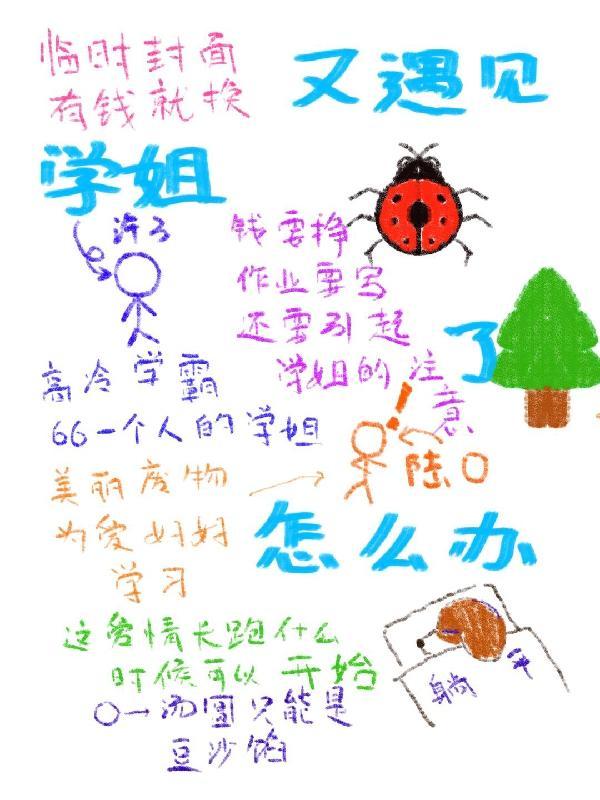 临时封面
有钱就换
又遇见
学姐
许了
钱要挣
作业要写
还要引起
学姐的注意
了
高冷学霸
66一个人的学姐
!
陆〇
美丽废物
为爱妈妈
学习
怎么办
这爱情长跑什么
时候可以开始
躺平
〇一汤圆只能是
豆沙馅